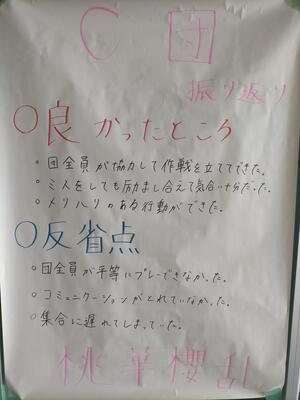 C団
振り返り
○良かったところ
・団全員が協力して作戦を立ててできた。
・ミスをしても励まし合えて気合い十分だった。
・メリハリのある行動ができた。
○反省点
・団全員が平等にプレーできなかった。
・コミュニケーションがとれていなかった。
・集合に遅れてしまっていた。
桃華櫻乱